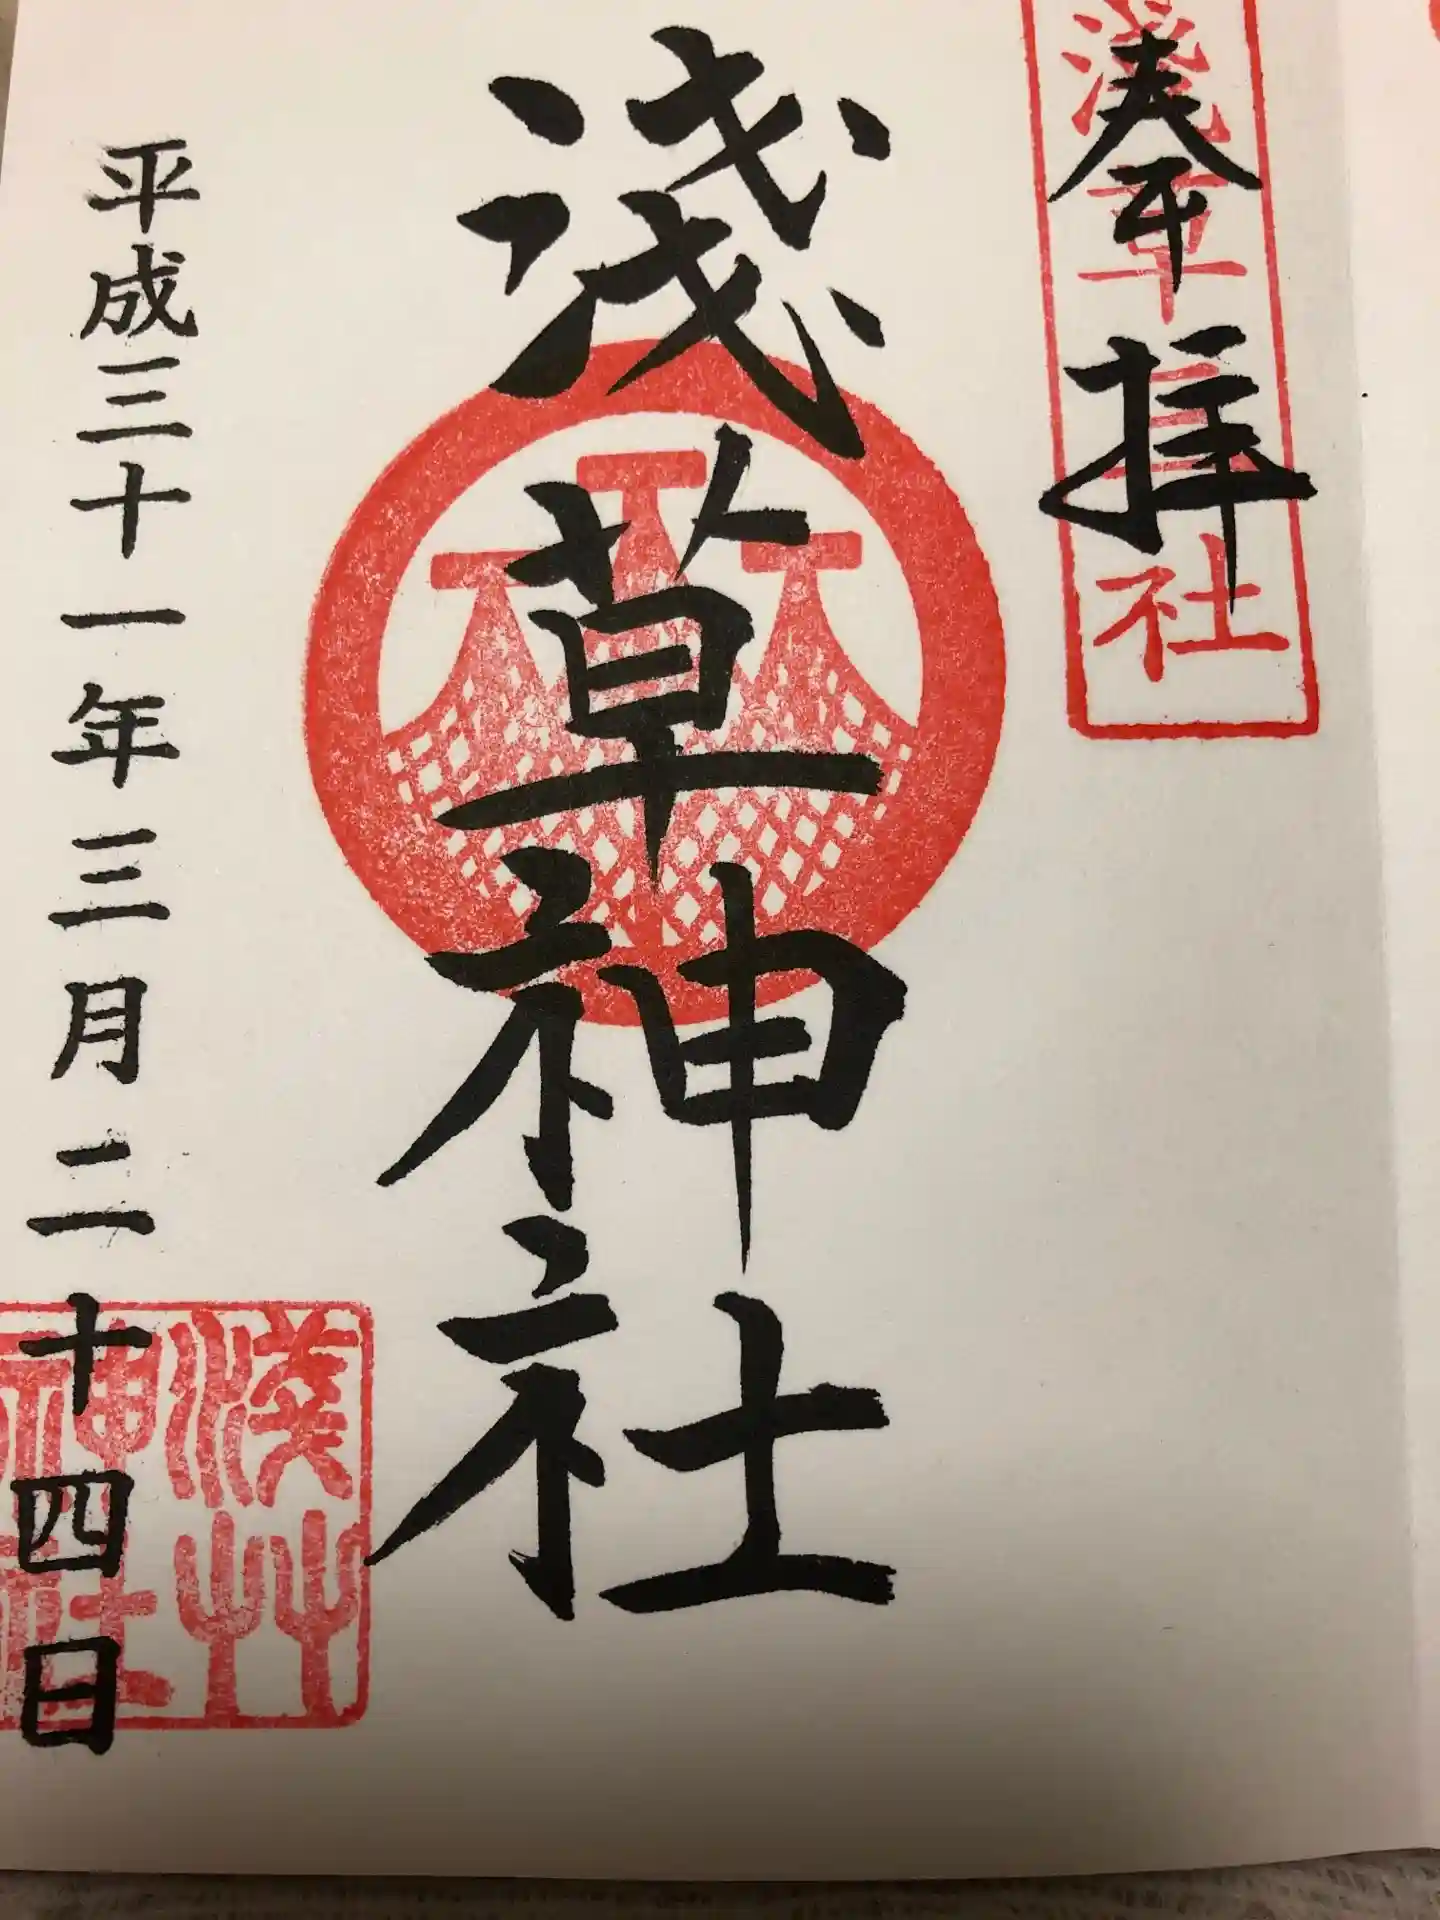 奉拝
淺草神社
淺草神社
平成三十一年三月二十四日
淺艸
神社